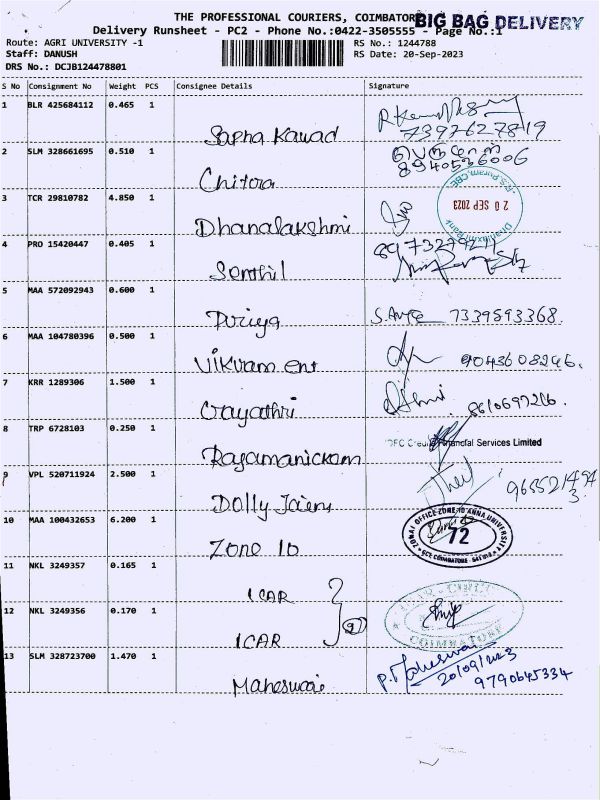 THE PROFESSIONAL COURIERS, COIMBATOR
BIG BAG DELIVERY
Delivery Runsheet - PC2 - Phone No.:0422-3505555 - Page No.:1
Route: AGRI UNIVERSITY -1
RS No.: 1244788
Staff: DANUSH
RS Date: 20-Sep-2023
DRS No.: DCJB124478801
S No Consignment No Weight PCS Consignee Details Signature
1 BLR 425684112 0.465 1
Sapna Kawad
7397627819
2 SLM 328661695 0.510 1
Chitora
8940536006
3 TCR 29810782 4.850 1
Dhanalakshmi
R.S.Puram, CBE
20 SEP 2023
Dhanlaxmi Bank
4 PRO 15420447 0.405 1
Senthil
5 MAA 572092943 0.600 1
Puriya
7339593368.
6 MAA 104780396 0.500 1
Vikram ent
9043608246.
7 KRR 1289306 1.500 1
Gayathri
8 TRP 6728103 0.250 1
Financial Services Limited
Rajamanickam
9 VPL 520711924 2.500 1
Dolly Jain
10 MAA 100432653 6.200 1
Zone 10
ZONAL OFFICE ZONE-10 ANNA UNIVERSITY
72
11 NKL 3249357 0.165 1
ICAR
12 NKL 3249356 0.170 1
ICAR
COIMBATORE
13 SLM 328723700 1.470 1
Maheswari
P. Maheswari
20/09/2023
9790645334